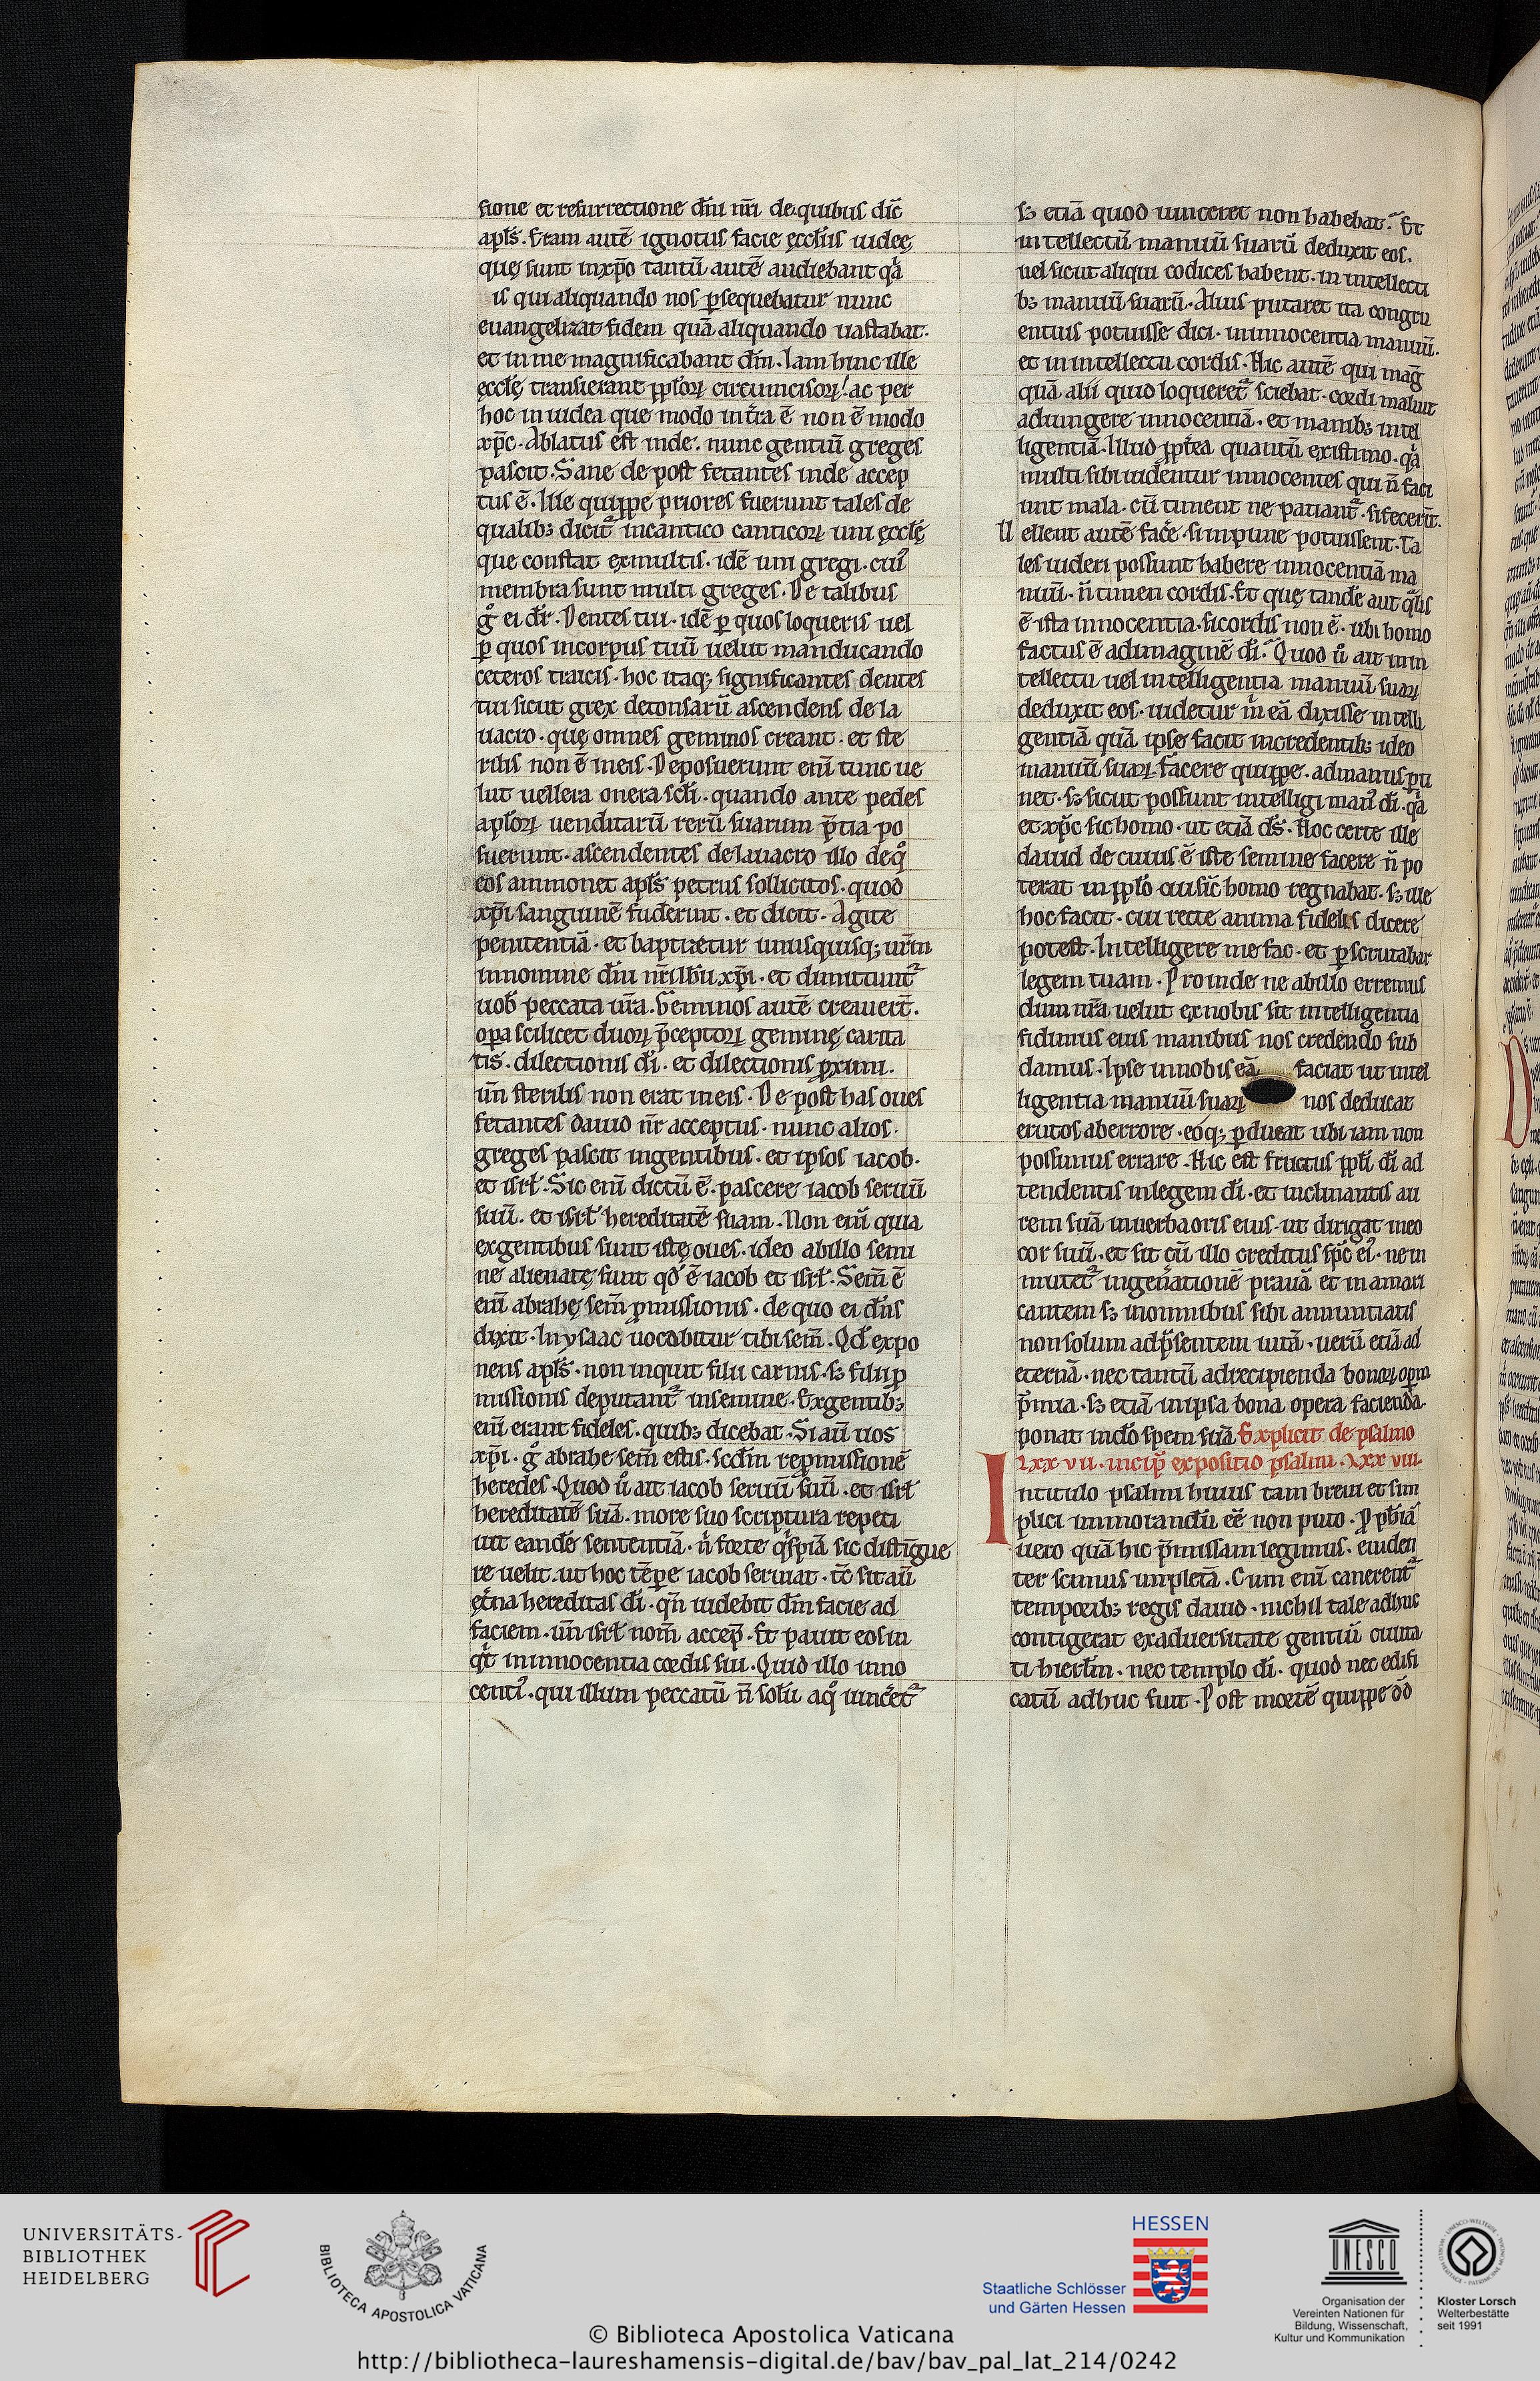 sione et resurrectione dn̄i nr̄i de quibus dic̄
apl̄s. Eram autē ignotus facie ęccl̄iis iudeę
quę sunt inxp̄o tantū autē audiebant qͣa
is qui aliquando nos ꝑsequebatur nunc
euangelizat fidem quā aliquando uastabat.
et in me magnificabant dn̄m. Iam hinc ille
ęccl̄ę transierant ppl̄oꝝ circumcisoꝝ! ac per
hoc in iudea que modo in tr̄a ē non ē modo
xp̄c. Ablatus est inde. nunc gentiū greges
pascit. Sane de post fetantes inde accep
tus ē. Ille quippe priores fuerunt tales de
qualibꝫ dicit᷑ incantico canticoꝝ uni ęccl̄ę
que constat exmultis. idē uni gregi. cui᷒
membra sunt multi greges. De talibus
gͦ ei dr̄. Dentes tui. idē ꝑ quos loqueris uel
ꝑ quos incorpus tuū uelut manducando
ceteros traicis. hoc itaqꝫ significantes dentes
tui sicut grex detonsarū ascendens de la
uacro. quę omnes geminos creant. et ste
rilis non ē ineis. Deposuerunt enī tunc ue
lut uellera onera scl̄i. quando ante pedes
apl̄oꝝ uenditarū rerū suarum p̄tia po
suerunt. ascendentes de lauacro illo de qͦ
eos ammonet apl̄s petrus sollicitos. quod
xp̄i sanguinē fuderint. et dicit. Agite
penitentiā. et baptizetur unusquisqꝫ ur̄m
innomine dn̄i nr̄i ihū xp̄i. et dimittunt᷑
uob̄ peccata ur̄a. Geminos autē creauert̄.
oꝑa scilicet duoꝝ p̄ceptoꝝ geminę carita
tis. dilectionis dī. et dilectionis ꝓximi.
un̄ sterilis non erat ineis. De post has oues
fetantes dauid nr̄ acceptus. nunc alios.
greges pascit ingentibus. et ipsos iacob.
et isrl̄. Sic enī dictū ē. pascere iacob seruū
suū. et isrl̄ hereditatē suam. Non enī quia
exgentibus sunt istę oues. ideo abillo semi
ne alienatę sunt qd̄ ē iacob et isrl̄. Sem̄ ē
enī abrahę sem̄ ꝓmissionis. de quo ei dn̄s
dixit. In ysaac uocabitur tibi sem̄. Qd̄ expo
nens apl̄s. non inquit filii carnis. sꝫ filii ꝓ
missionis deputant᷑ insemine. Exgentibꝫ
enī erant fideles. quibꝫ dicebat. Si aū uos
xp̄i. gͦ abrahe sem̄ estis. scdm̄ repmissionē
heredes. Quod uͦ ait iacob seruū suū. et isrl̄
hereditatē suā. more suo scriptura repeti
uit eandē sententiā. nͥ forte qͥspiā sic distīgue
re uelit. ut hoc tēpe iacob seruiat. tc̄ sit aū
ęt̄na hereditas dī. qn̄ uidebit dm̄ facie ad
faciem. un̄ isrl̄ nom̄ accep̄. Et pauit eos in
qͥt ininnocentia cordis sui. Quid illo inno
centi᷒. qui illum peccatū n̄ solū a qͦ uincet᷑
sꝫ etiā quod uinceret non habebat. Et
intellectū manuū suarū deduxit eos.
uel sicut aliqui codices habent. in intellecti
bꝫ manuū suarū. Alius putaret ita congru
entius potuisse dici. ininnocentia manuū.
et in intellectu cordis. Hic autē qui mag̅
quā alii quid loqueret᷑ sciebat. cordi maluit
adiungere innocentiā. et manibꝫ intel
ligentiā. Illud ppt̄ea quantū existimo. qͣa
multi sibi uidentur innocentes qui n̄ faci
unt mala. cū timent ne patiant᷑. si fecert̄.
Uellent autē facē. si inpune potuissent. Ta
les uideri possunt habere innocentiā ma
nuū. n̄ timen cordis. Et quę tandē aut qͣlis
ē ista innocentia. si cordis non ē. ubi homo
factus ē ad imaginē dī. Quod uͦ ait inin
tellectu uel intelligentia manuū suaꝝ
deduxit eos. uidetur m̄ eā dixisse intelli
gentiā quā ipse facit incredentibꝫ ideo
manuū suaꝝ. facere quippe. ad manus ꝑti
net. sꝫ sicut possunt intelligi man᷒ dī. qͣa
et xp̄c sic homo. ut etiā ds̄. Hoc certe ille
dauid de cuius ē iste semine facere n̄ po
terat in ppl̄o cui sic̄ homo regnabat. sꝫ ille
hoc facit. cui recte anima fidelis dicere
potest. Intelligere me fac. et ꝑscrutabor
legem tuam. Proinde ne abillo erremus
dum nr̄a uelut exnobis sit intelligentia
fidimus eius manibus nos credendo sub
damus. Ipse innobis eā faciat ut intel
ligentia manuū suaꝝ nos deducat
erutos aberrore. eoqꝫ ꝑducat ubi iam non
possimus errare. Hic est fructus ppl̄i dī ad
tendentis inlegem dī. et inclinantis au
rem suā inuerba oris eius. ut dirigat ineo
cor suū. et sit cū illo creditus sp̄c ei᷒. ne in
mutet᷑ ingen̄ationē prauā et in amari
cantem sꝫ inomnibus sibi annuntiatis
non solum ad p̄sentem uitā. uerū etiā ad
eternā. nec tantū adrecipienda bonoꝝ opm̄
p̄mia. sꝫ etiā inipsa bona opera facienda.
ponat indō spem suā. Explicit de psalmo
LXX VII. incip̄ expositio psalmi. LXX VIII.
Intitulo psalmi huius tam breui et sim
plici immorandū eē non puto. P ph̄iā
uero quā hic p̄missam legimus. euiden
ter scimus impletā. Cum enī canerent᷑
temporibꝫ regis dauid. nichil tale adhuc
contigerat exaduersitate gentiū ciuita
ti hierl̄m. nec templo dī. quod nec edifi
catū adhuc fuit. Post mortē quippe dd̄
UNIVERSITÄTS-
BIBLIOTHEK
HEIDELBERG
BIBLIOTECA APOSTOLICA VATICANA
HESSEN
Staatliche Schlösser
und Gärten Hessen
UNESCO
Organisation der
Vereinten Nationen für
Bildung, Wissenschaft,
Kultur und Kommunikation
Kloster Lorsch
Welterbestätte
seit 1991
© Biblioteca Apostolica Vaticana
http://bibliotheca-laureshamensis-digital.de/bav/bav_pal_lat_214/0242